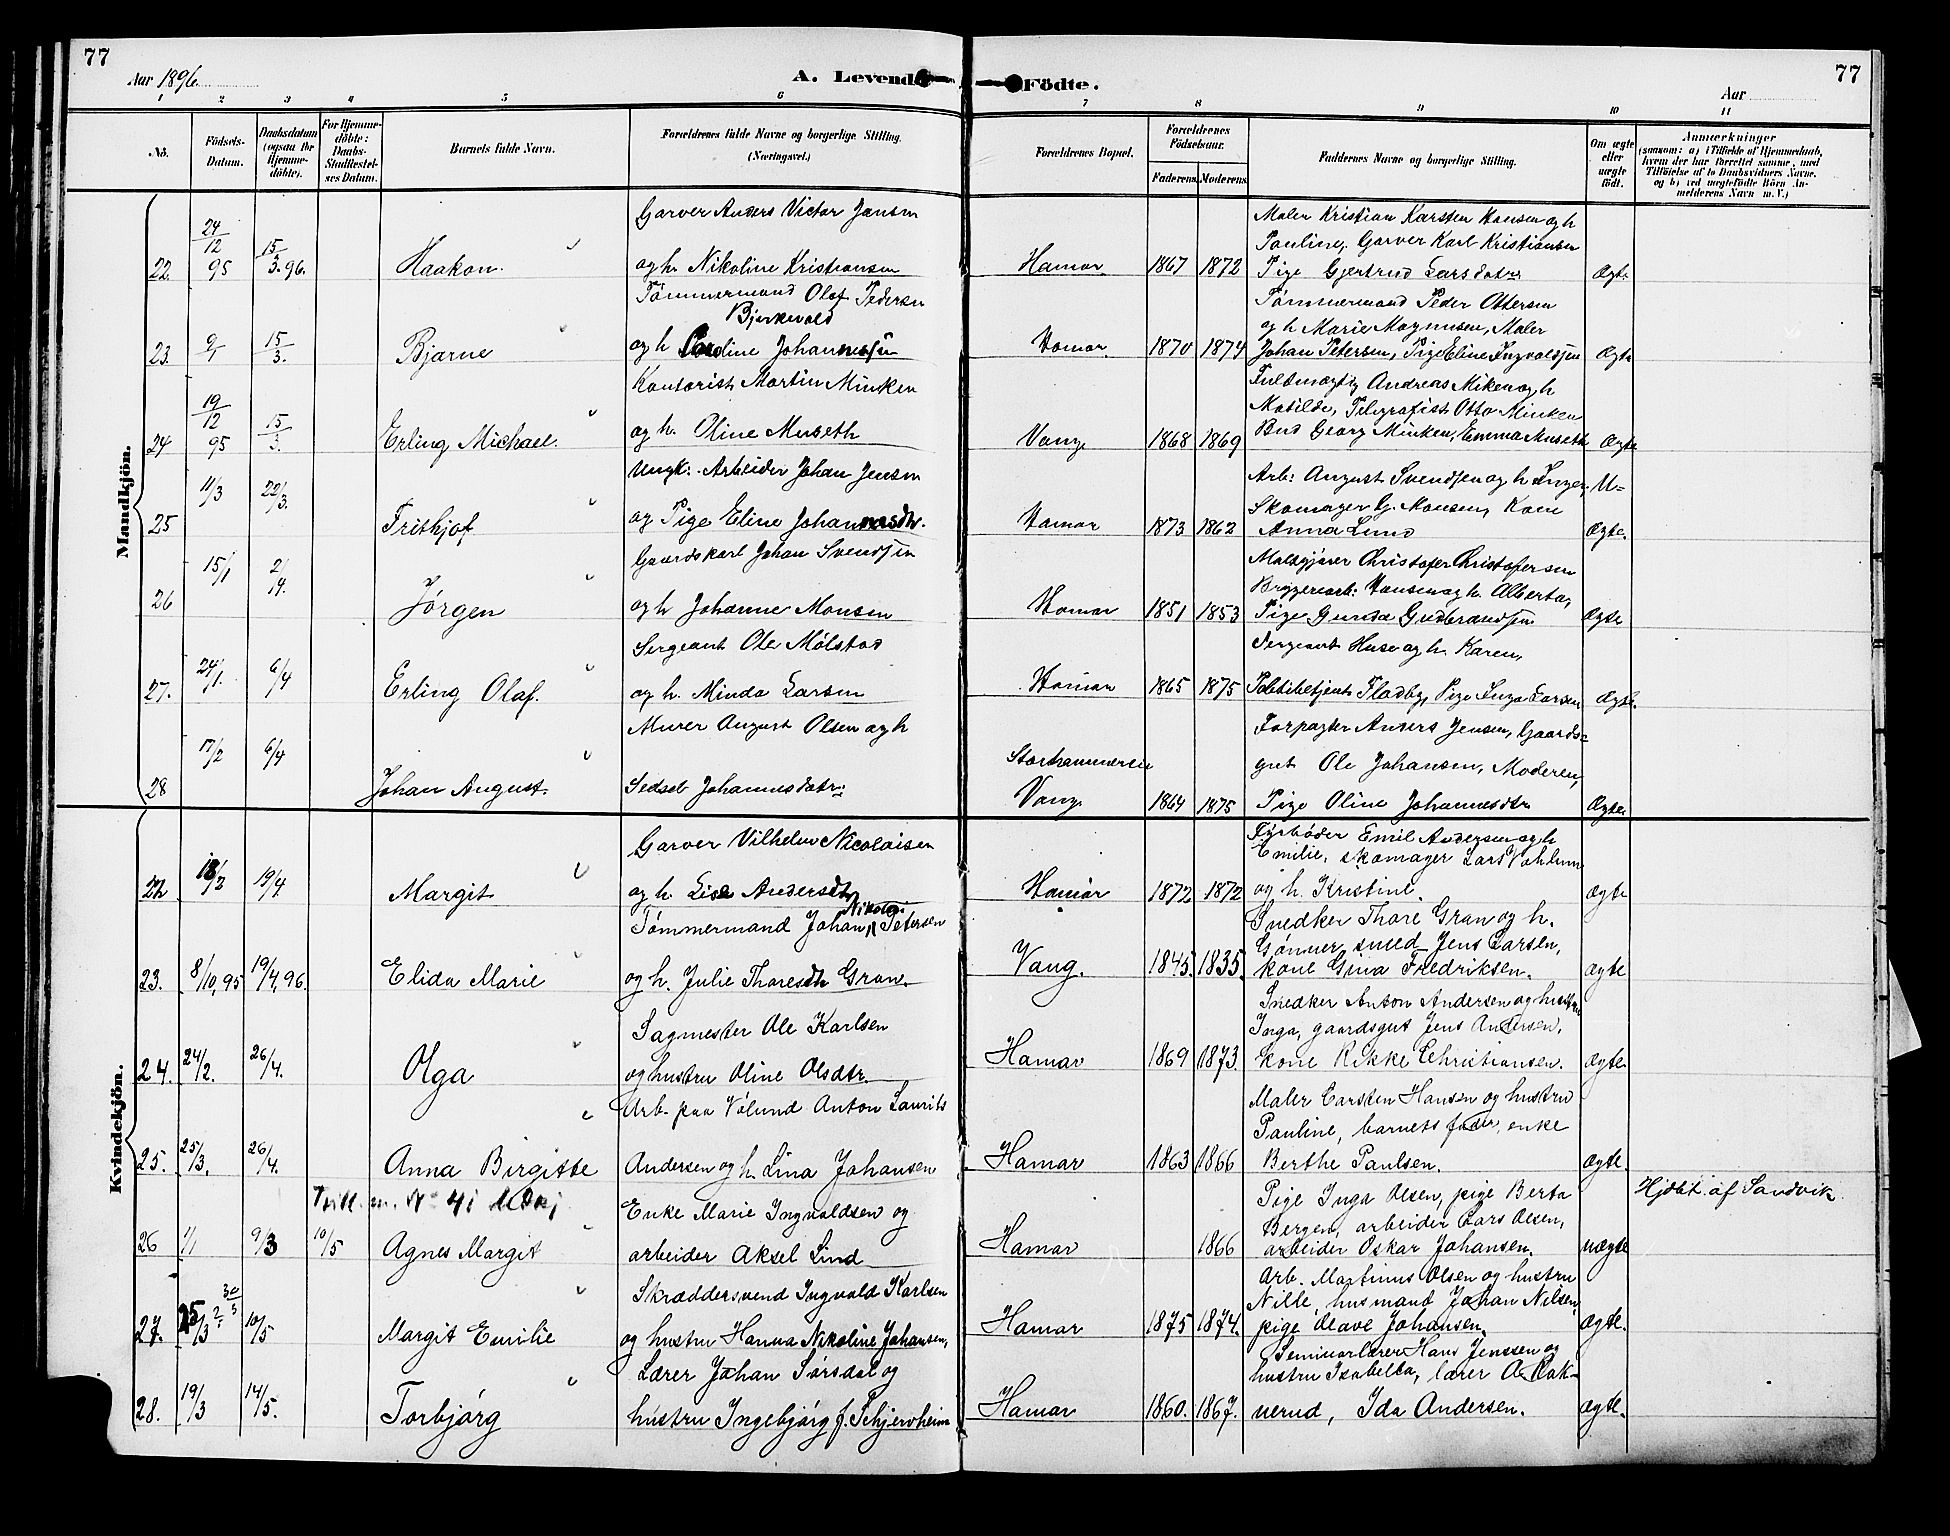 77
77
Aar 1896.
A. Levende
Födte.
Aar
1 2 3 4 5 6 7 8 9 10 11
No.
Födsels-
Datum.
Daabsdatum
(ogsaa for
Hjemme-
döbte).
For Hjemme-
döbte:
Daabs-
Stadfæstel-
ses Datum.
Barnets fulde Navn.
Forældrenes fulde Navne og borgerlige Stilling.
(Næringsvei.)
Forældrenes Bopæl.
Forældrenes
Födselsaar.
Faderens.
Moderens.
Faddernes Navne og borgerlige Stilling.
Om ægte
eller
uægte
födt.
Anmærkninger
(saasom: a) i Tilfælde af Hjemmedaab,
hvem der har forrettet samme, med
Tilföielse af to Daabsvidners Navne,
og b) ved uægtefödte Börn An-
melderens Navn m. V.)
Mandkjön.
22. 24/12 95 15/3. 96. Haakon.
Garver Anders Victor Jansen
og h. Nikoline Kristiansen
Hamar 1867 1872
Maler Kristian Karsten Hansen og h
Pauline, Garver Karl Kristiansen
Pige Gjertrud Larsdatter
Ægte
23. 9/1 15/3. Bjarne
Tømmermand Olaf Pedersen
Bjerkevold
og h Pauline Johannesen
Hamar 1870 1874
Tømmermand Peder Ottersen
og h Marie Magnusen, Maler
Johan Petersen, Pige Eline Ingvaldsen
Ægte
24 19/12 95 15/3. Erling Michael.
Kontorist Martin Minken
og h. Oline Museth
Vang 1868 1869
Fuldmægtig Andreas Miken og h
Matilde, Telegrafist Otto Minken
Bud Georg Minken, Emma Museth
Ægte
25 11/3 22/3. Frithjof
Ungk: Arbeider Johan Jensen
og Pige Eline Johannesdtr.
Hamar 1873 1862
Arb: August Svendsen og h Inger,
Skomager G. Monsen, Kone
Anna Lund
U=
Ægte.
26 15/1 2/4. Jørgen
Gaardskarl Johan Svendsen
og h Johanne Monsen
Hamar 1851 1853
Maltgjører Christofer Christofersen
Bryggeriarb: Hansen og h. Alberta,
Pige Gunda Gudbrandsen
Ægte
27. 24/1. 6/4 Erling Olaf.
Sergeant Ole Mølstad
og h. Minda Larsen
Hamar 1865 1875
Sergeant Huse og h. Karen,
Politibetjent Fladby, Pige Inga Larsen
Ægte.
28 17/2 6/4 Johan August.
Murer August Olsen og h
Sedsel Johannesdatr:
Storhammeren
Vang 1864 1875
Forpagter Anders Jensen, Gaards-
gut Ole Johansen, Moderen,
Pige Oline Johannesdtr
Ægte
Kvindekjön.
22 18/2 19/4 Margit
Garver Vilhelm Nicolaisen
og h. Lise Andersdtr
Hamar 1872 1872
Fyrbøder Emil Andersen og h
Emilie, skomager Lars Vahlum
og h. Kristine.
ægte
23. 8/10, 95 19/4, 96. Elida Marie
Tømmermand Johan Nikolai Petersen
og h. Julie Thoresdtr Gran.
Vang. 1845. 1835.
Snedker Thore Gran og h.
Gønner, smed Jens Larsen,
kone Gina Fredriksen.
ægte
24. 24/2. 26/4. Olga
Sagmester Ole Karlsen
og hustru Oline Olsdtr.
Hamar 1869 1873.
Snedker Anton Andersen og hustru
Inga, gaardsgut Jens Andersen,
kone Rikke Christiansen.
ægte
25. 25/3. 26/4. Anna Birgitte
Arb. paa Vølund Anton Laurits
Andersen og h. Lina Johansen
Hamar 1863 1866
Maler Carsten Hansen og hustru
Pauline, barnets fader, enke
Berthe Paulsen.
ægte.
26 1/1 9/3 10/5 Agnes Margit
Enke Marie Ingvaldsen og
arbeider Aksel Lind
Hamar 1866
Pige Inga Olsen, pige Berta
Bergen, arbeider Lars Olsen,
arbeider Oskar Johansen.
uægte
Hjdbt. af Sandvik.
27. 25/3 10/5 Margit Emilie
Skræddersvend Ingvald Karlsen
og hustru Hanna Nikoline Johansen,
Hamar 1875 1874.
Arb. Martinus Olsen og hustru
Nille, husmand Johan Nilsen,
pige Oleave Johansen.
ægte.
28. 19/3 14/5. Torbjørg
Lærer Johan Sørsdal og
hustru Ingebjørg f. Schjervheim
Hamar 1860. 1867.
Seminarlærer Hans Jenssen og
hustru Isabella, lærer A. Bak-
nerud, Ida Andersen.
ægte.